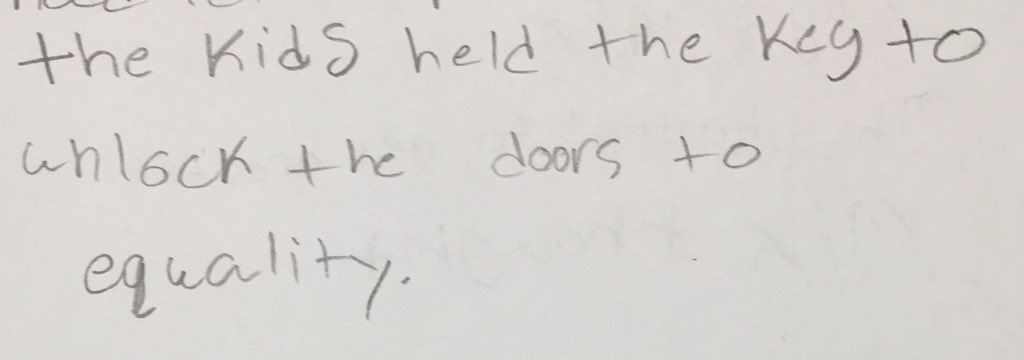 the kids held the key to
unlock the doors to
equality.